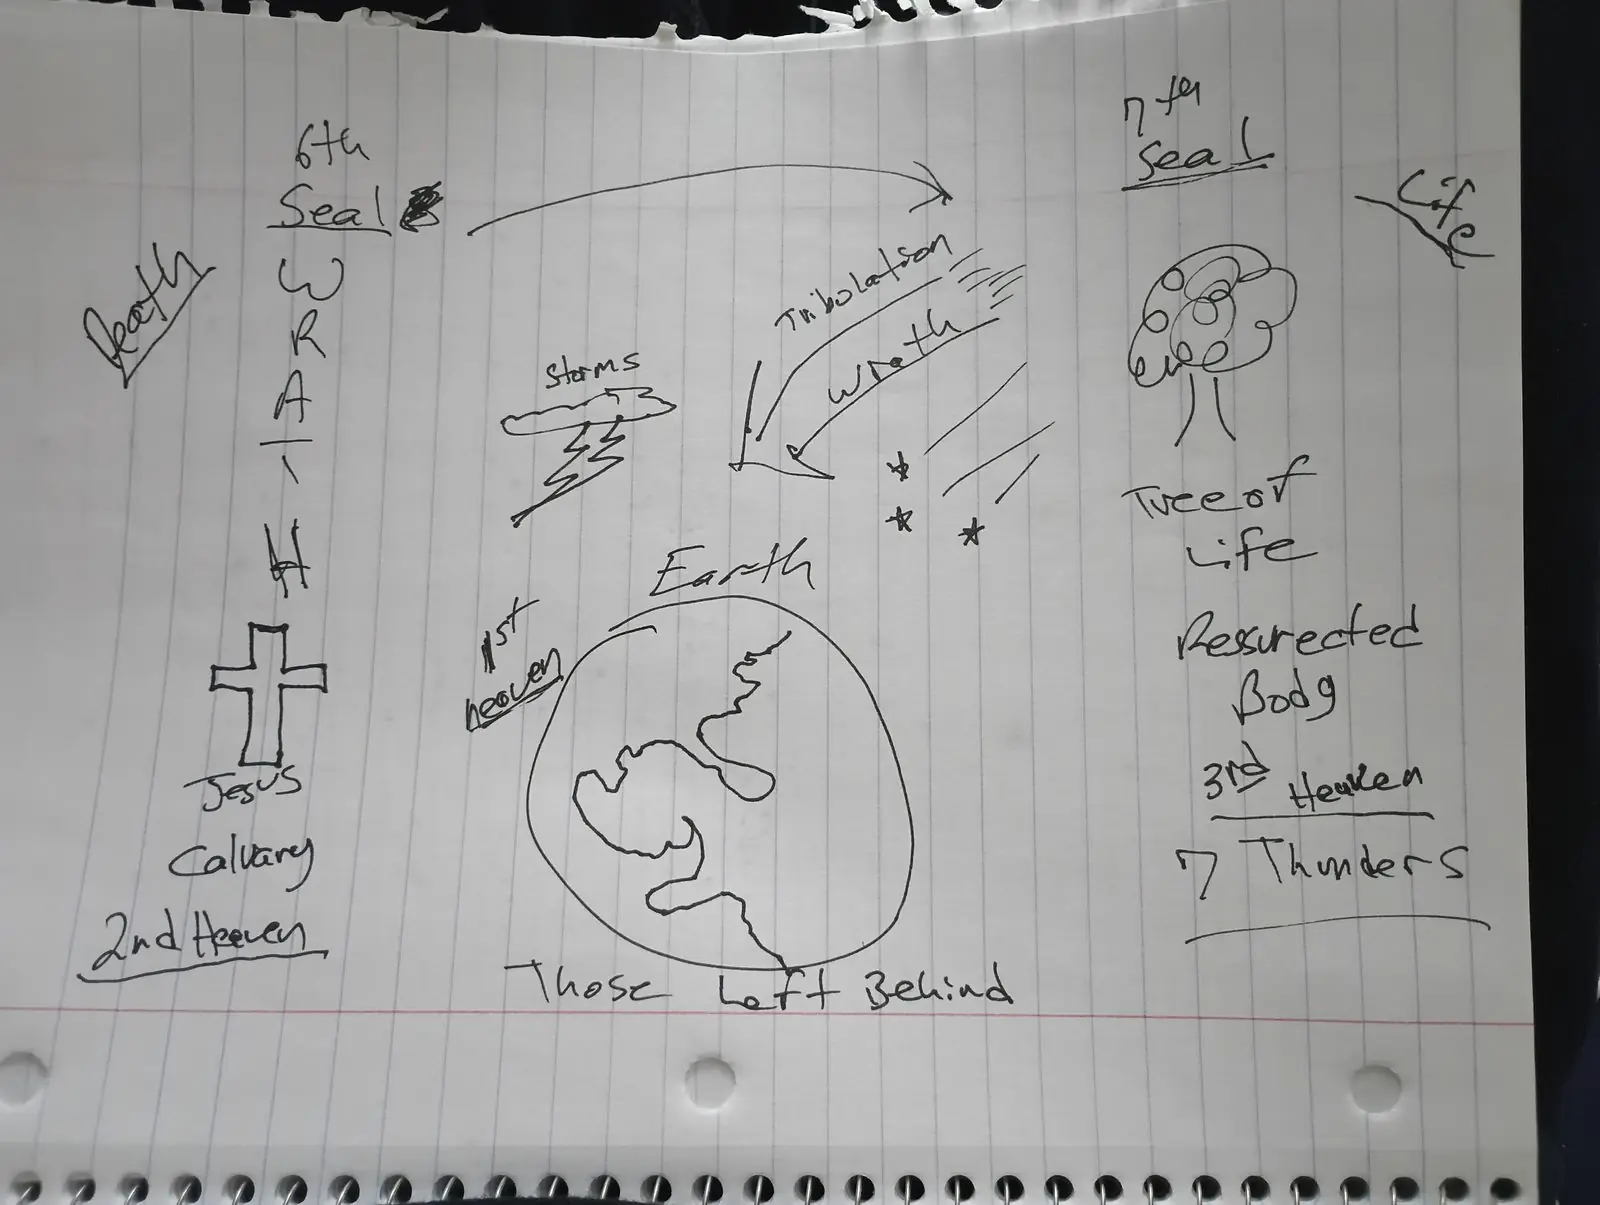 6th
Seal
Death
W
R
A
T
H
Jesus
Calvary
2nd Heaven
Storms
Tribulation
Wrath
Earth
1st
heaven
Those Left Behind
7th
Seal
Life
Tree of
Life
Ressurected
Body
3rd Heaven
7 Thunders